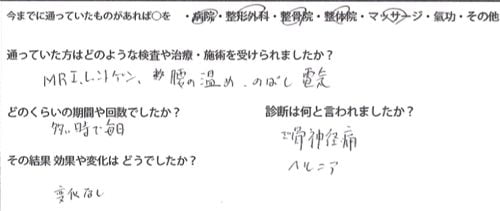 今までに通っていたものがあれば○を ・病院・整形外科・整骨院・整体院・マッサージ・氣功・その他
通っていた方はどのような検査や治療・施術を受けられましたか?
MRI、レントゲン、腰の温め、のばし 電気
どのくらいの期間や回数でしたか? 診断は何と言われましたか?
多い時で毎日 坐骨神経痛
ヘルニア
その結果 効果や変化は どうでしたか?
変化なし